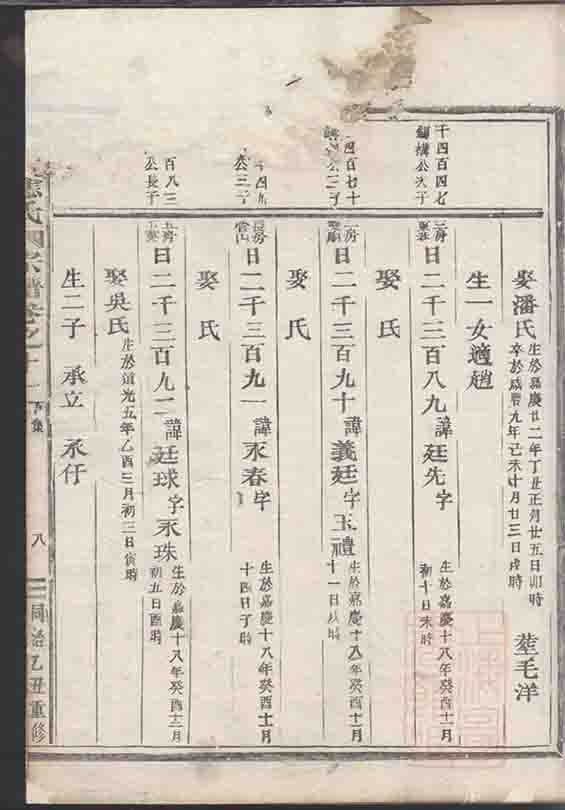 娶潘氏 生於嘉慶廿二年丁丑正月廿五日卯時 卒於咸豐九年己未十月廿三日戌時 塟毛洋
生一女適趙
千四百四七
公次子
二房
日二千三百八九 諱廷先字 生於嘉慶十八年癸酉十一月初十日未時
娶氏
四百七十
二房
日二千三百九十 諱義廷字玉禮 生於嘉慶十八年癸酉十一月十一日
娶氏
公三子
長房
日二千三百九一 諱永春字 生於嘉慶十八年癸酉十一月十四日子時
娶氏
百八三
公長子
房
日二千三百九二 諱廷球字永珠 生於嘉慶十八年癸酉十二月初五日酉時
娶吳氏 生於道光五年乙酉三月初三日寅時
生二子 承立 承仔
氏四宗譜卷之十一 下集 八 同治乙丑重修